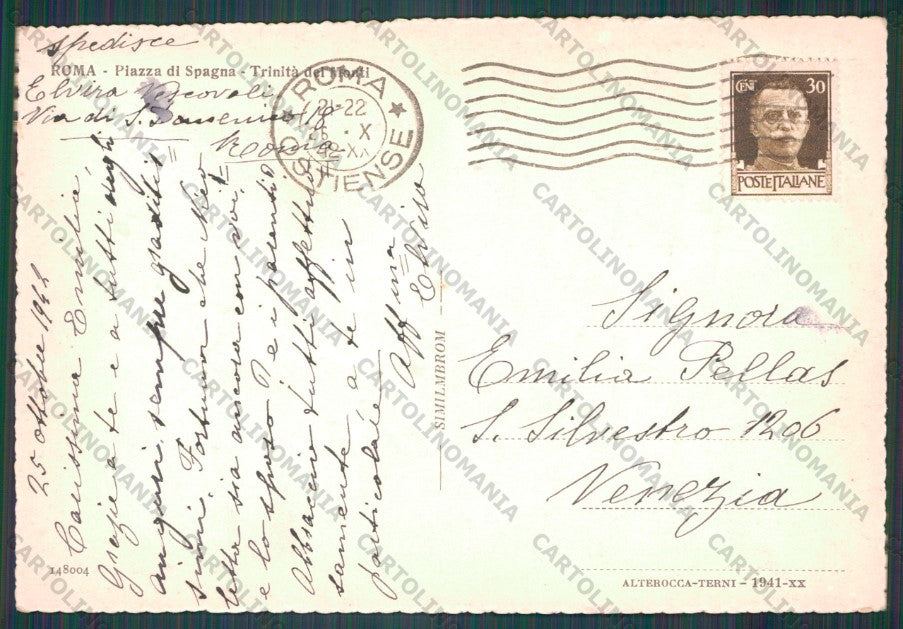 spedisce
ROMA - Piazza di Spagna - Trinità dei Monti
Elvira
Via di S. Domenico
Roma
ROMA
OSTIENSE
21-22
X
XX
CENT 30
POSTE ITALIANE
25 ottobre 1942
Carissima Emilia,
Grazie a te e a tutti
auguri sempre graditis
simi. Fortuna che
letta sia ancora con voi
e lo sposo
Abbraccio tutti affettuo
samente a te in
particolare
aff.ma
Elvira
SIMILMBROM
Signora
Emilia Pellas
S. Silvestro 1206
Venezia
148004
ALTEROCCA-TERNI - 1941-XX
CARTOLINOMANIA